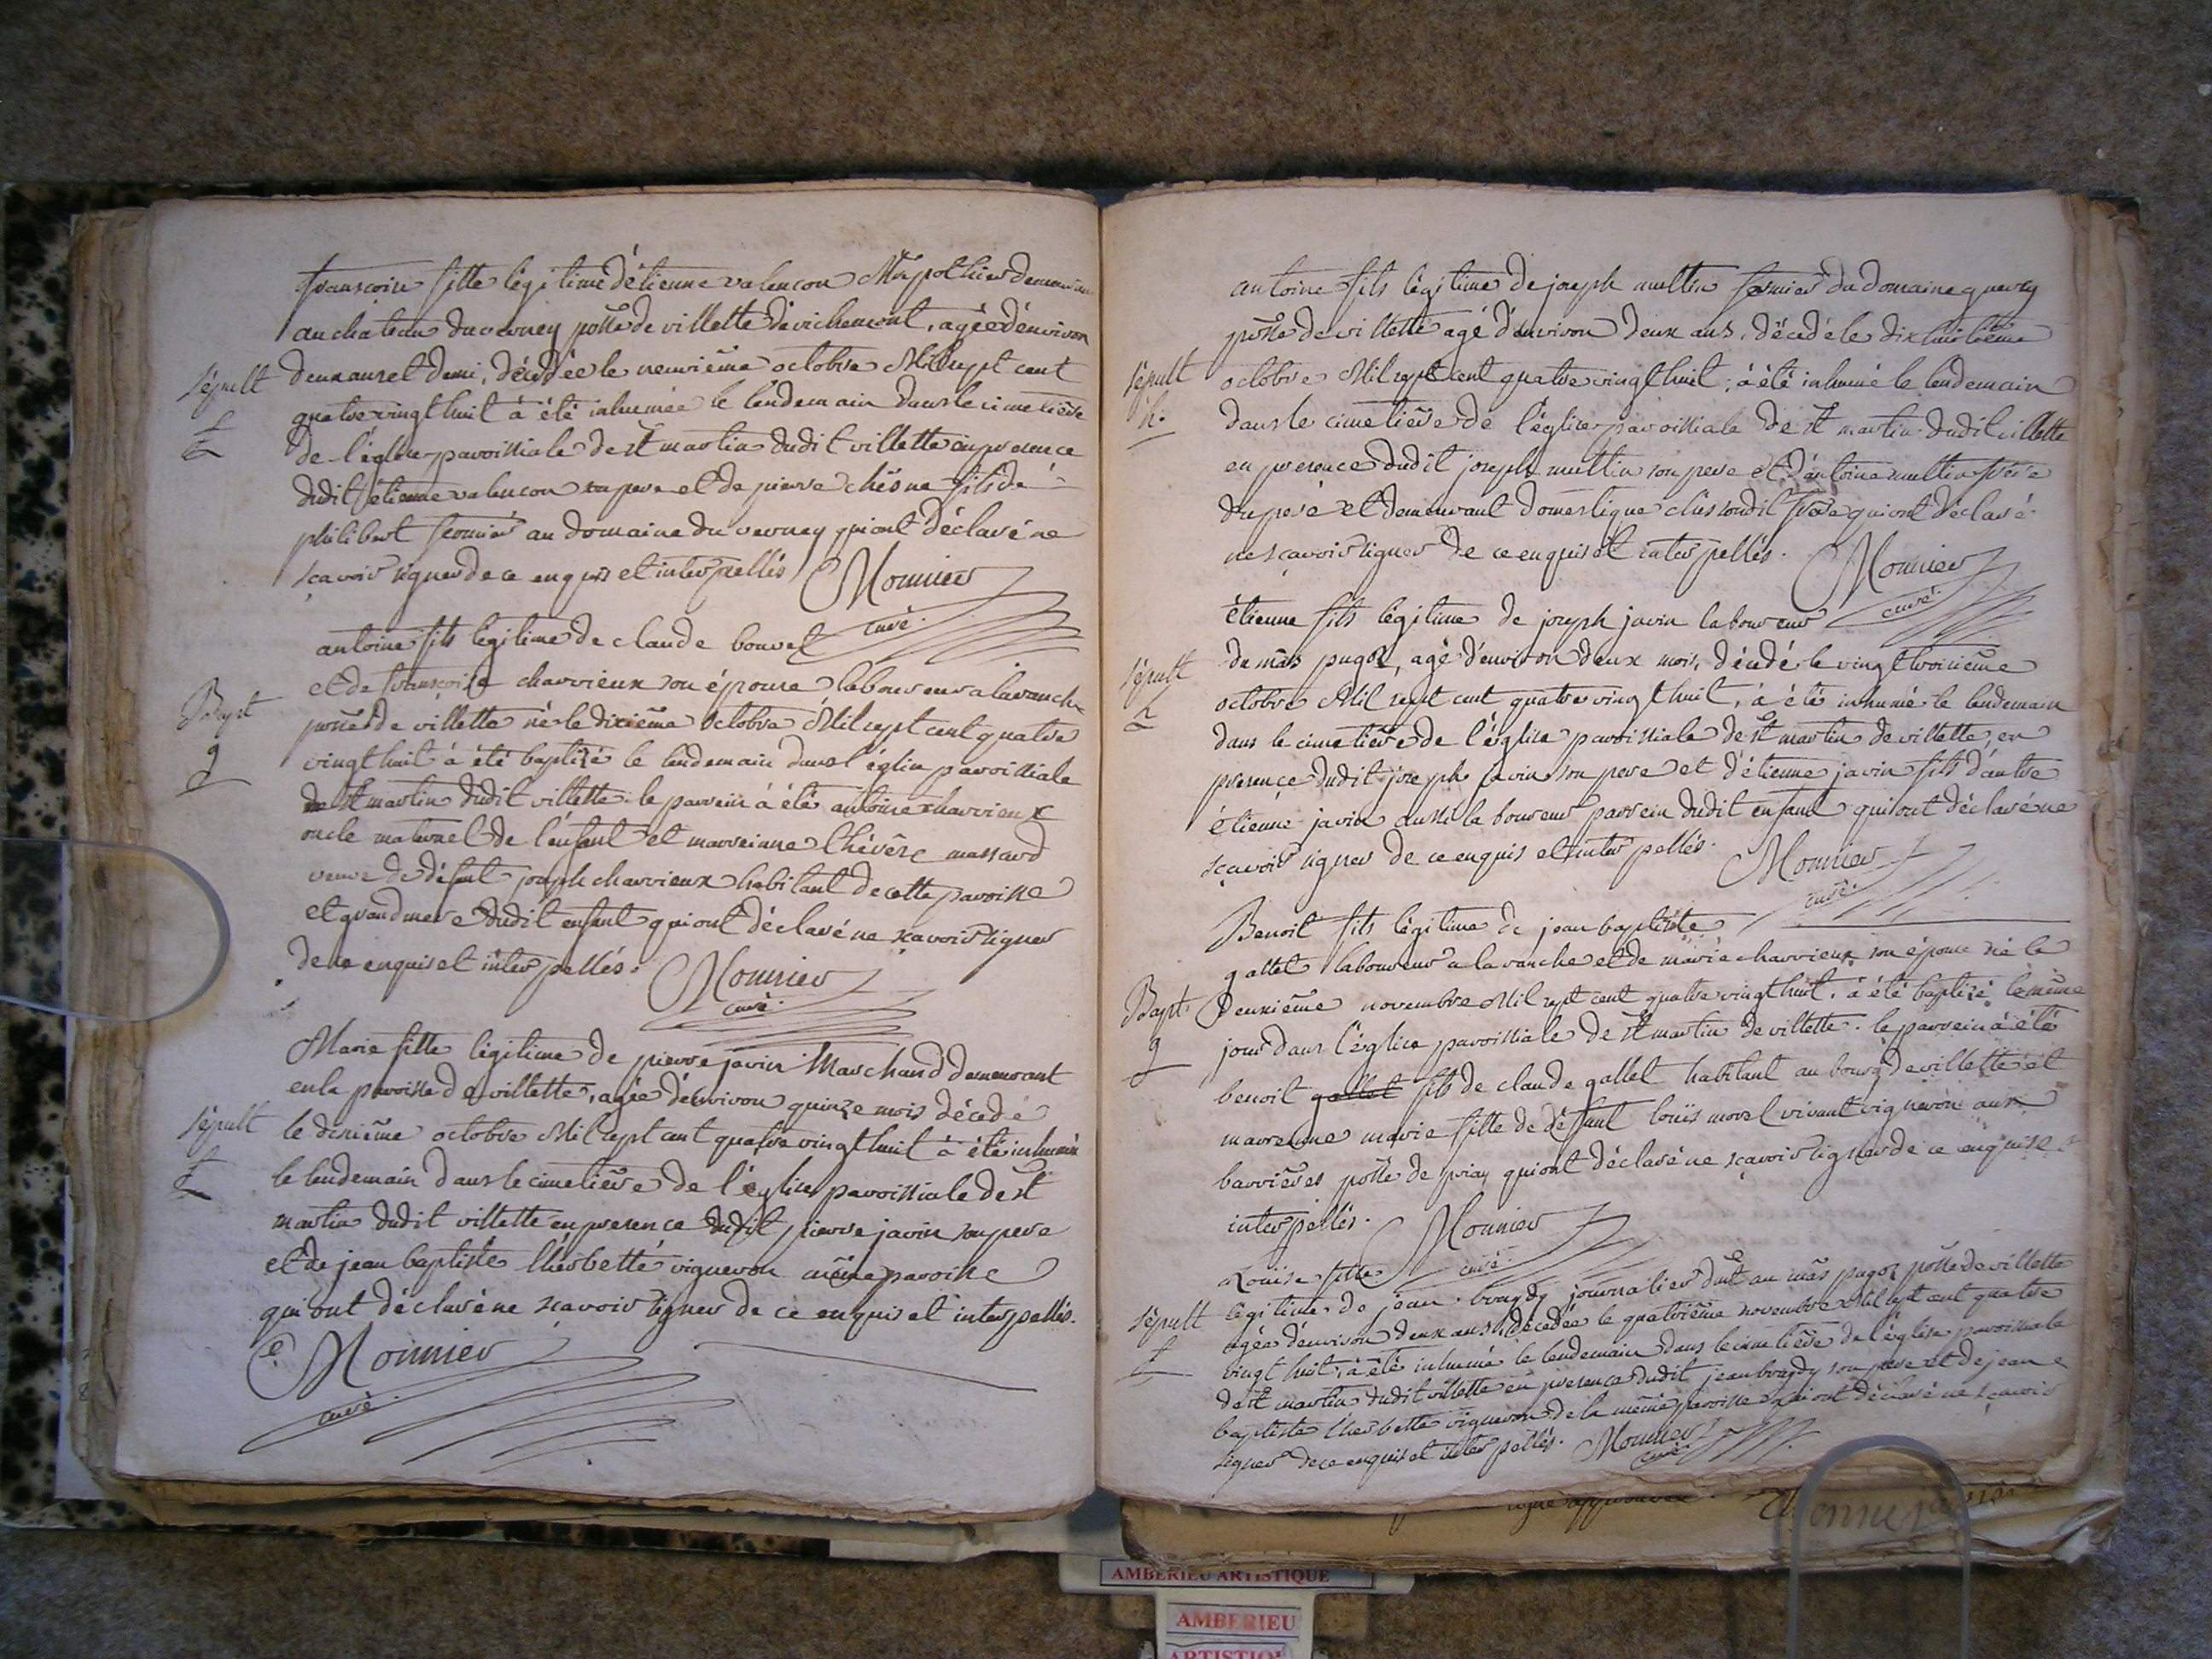 françoise fille légitime d'étienne valencon demeurant
au chateau du verney posse de villette de richemont, agée d'environ
Sépult
deux ans et demi, décédée le neuvième octobre Mil sept cent
quatre vingt huit à été inhumée le lendemain dans le cimetière
de l'église paroissiale de st martin dudit villette en presence
dudit étienne valencon son pere et de pierre chêsne fils de
philibert fermier au domaine du verney qui ont déclaré ne
sçavoir signer de ce enquis et interpellés Monnier
curé.
antoine fils légitime de claude bouvet
et de françoise charvieux son épouse laboureur a la ranche
Bapt
9
posse de villette né le dixième octobre Mil sept cent quatre
vingt huit à été baptizé le lendemain dans l'église paroissiale
de st martin dudit villette. le parrein à été antoine charvieux
oncle maternel de l'enfant et marreinne thérèse massard
veuve de défunt joseph charvieux habitant de cette paroisse
et grand mere dudit enfant qui ont déclaré ne scavoir signer
de ce enquis et interpellés. Monnier
curé.
Marie fille légitime de pierre javin Marchand demeurant
en la paroisse de villette, agée d'environ quinze mois décedé
Sépult
le dixième octobre Mil sept cent quatre vingt huit à été inhumée
le lendemain dans le cimetière de l'église paroissiale de st
martin dudit villette en presence dudit pierre javin son pere
et de jean baptiste lherbette vigneron même paroisse
qui ont déclaré ne scavoir signer de ce enquis et interpellés.
Monnier
curé.
antoine fils légitime de joseph multin fermier du domaine
posse de villette agé d'environ deux ans, décédé le dix huitième
Sépult
h.
octobre Mil sept cent quatre vingt huit, à été inhumé le lendemain
dans le cimetière de l'église paroissiale de st martin dudit villette
en presence dudit joseph multin son pere et d'antoine multin frère
du pere et demeurant domestique chès sondit frère qui ont déclaré
ne sçavoir signer de ce enquis et interpellés. Monnier
curé.
étienne fils légitime de joseph javin laboureur
Sépult
du mâs pugoz, agé d'environ deux mois, décédé le vingt troisième
octobre Mil sept cent quatre vingt huit, à été inhumé le lendemain
dans le cimetière de l'église paroissiale de st martin de villette, en
presence dudit joseph javin son pere et d'étienne javin fils d'autre
étienne javin aussi laboureur parrein dudit enfant qui ont déclaré ne
sçavoir signer de ce enquis et interpellés. Monnier
curé.
Benoit fils légitime de jean baptiste
gallet laboureur a la ranche et de marie charvieux son épouse né le
Bapt.
9
deuxième novembre Mil sept cent quatre vingt huit, à été baptizé le même
jour dans l'église paroissiale de st martin de villette. le parrein à été
benoit gallet fils de claude gallet habitant au bourg de villette et
marreinne marie fille de défunt louïs morel vivant vigneron aux
barrières posse de priay qui ont déclaré ne sçavoir signer de ce enquis et
interpellés. Monnier
curé.
Louise fille
légitime de jean bougdy journalier au mâs pugoz posse de villette
Sépult
agée d'environ deux ans, décédée le quatrième novembre Mil sept cent quatre
vingt huit, à été inhumé le lendemain dans le cimetière de l'église paroissiale
de st martin dudit villette en presence dudit jean bougdy son pere et de jean
baptiste lherbette vigneron de la même paroisse qui ont déclaré ne sçavoir
signer de ce enquis et interpellés. Monnier
curé.
AMBERIEU ARTISTIQUE
AMBERIEU
ARTISTIQUE